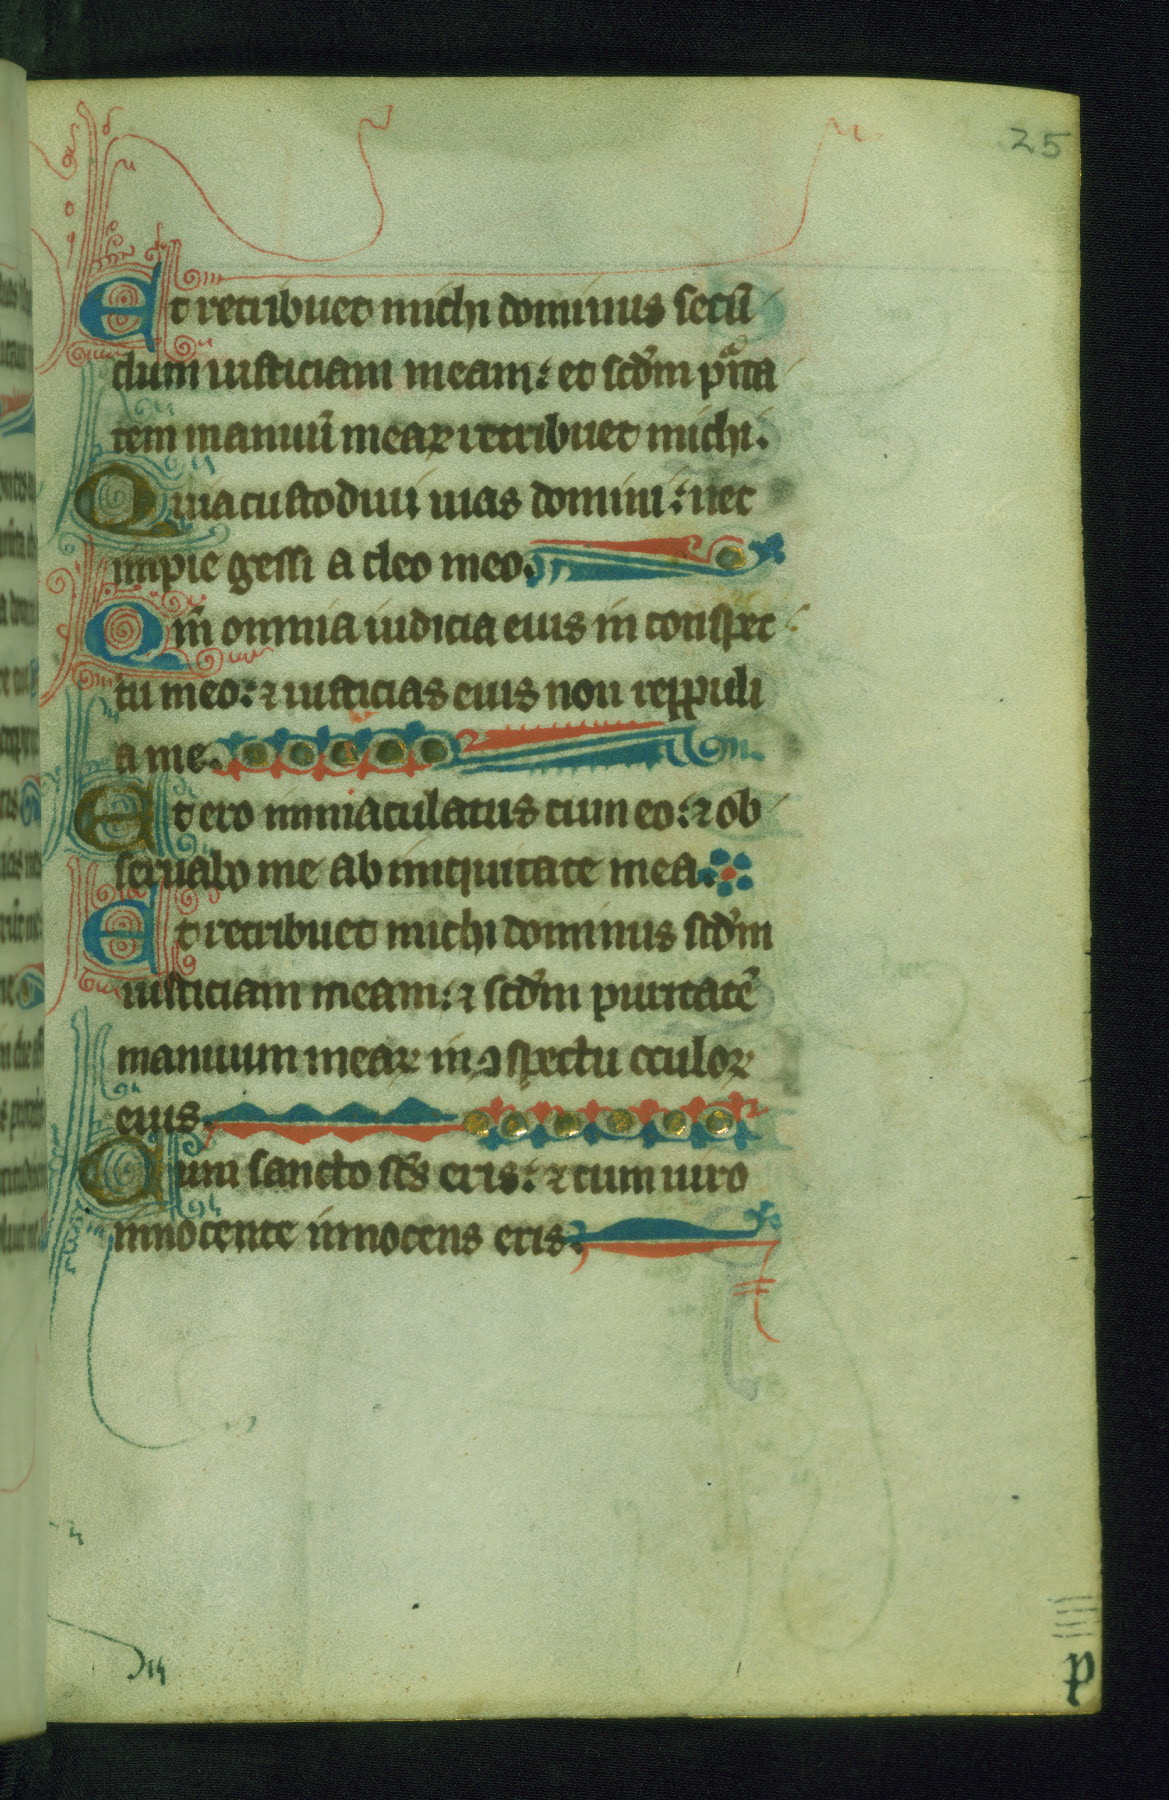 25
Et retribuet michi dominus secũ
dum iusticiam meam: et scd̃m pũta
tem manuũ meaꝝ retribuet michi.
Quia custodiui uias domini: nec
impie gessi a deo meo.
Qm̃ omnia iudicia eius in conspec
tu meo: ⁊ iusticias eius non reppuli
a me.
Et ero inmaculatus cum eo: ⁊ ob
seruabo me ab iniquitate mea.
Et retribuet michi dominus scd̃m
iusticiam meam: ⁊ scd̃m puritatẽ
manuum meaꝝ in ꝯspectu oculoꝝ
eius.
Cum sancto sc̃s eris: ⁊ cum uiro
innocente innocens eris.
p